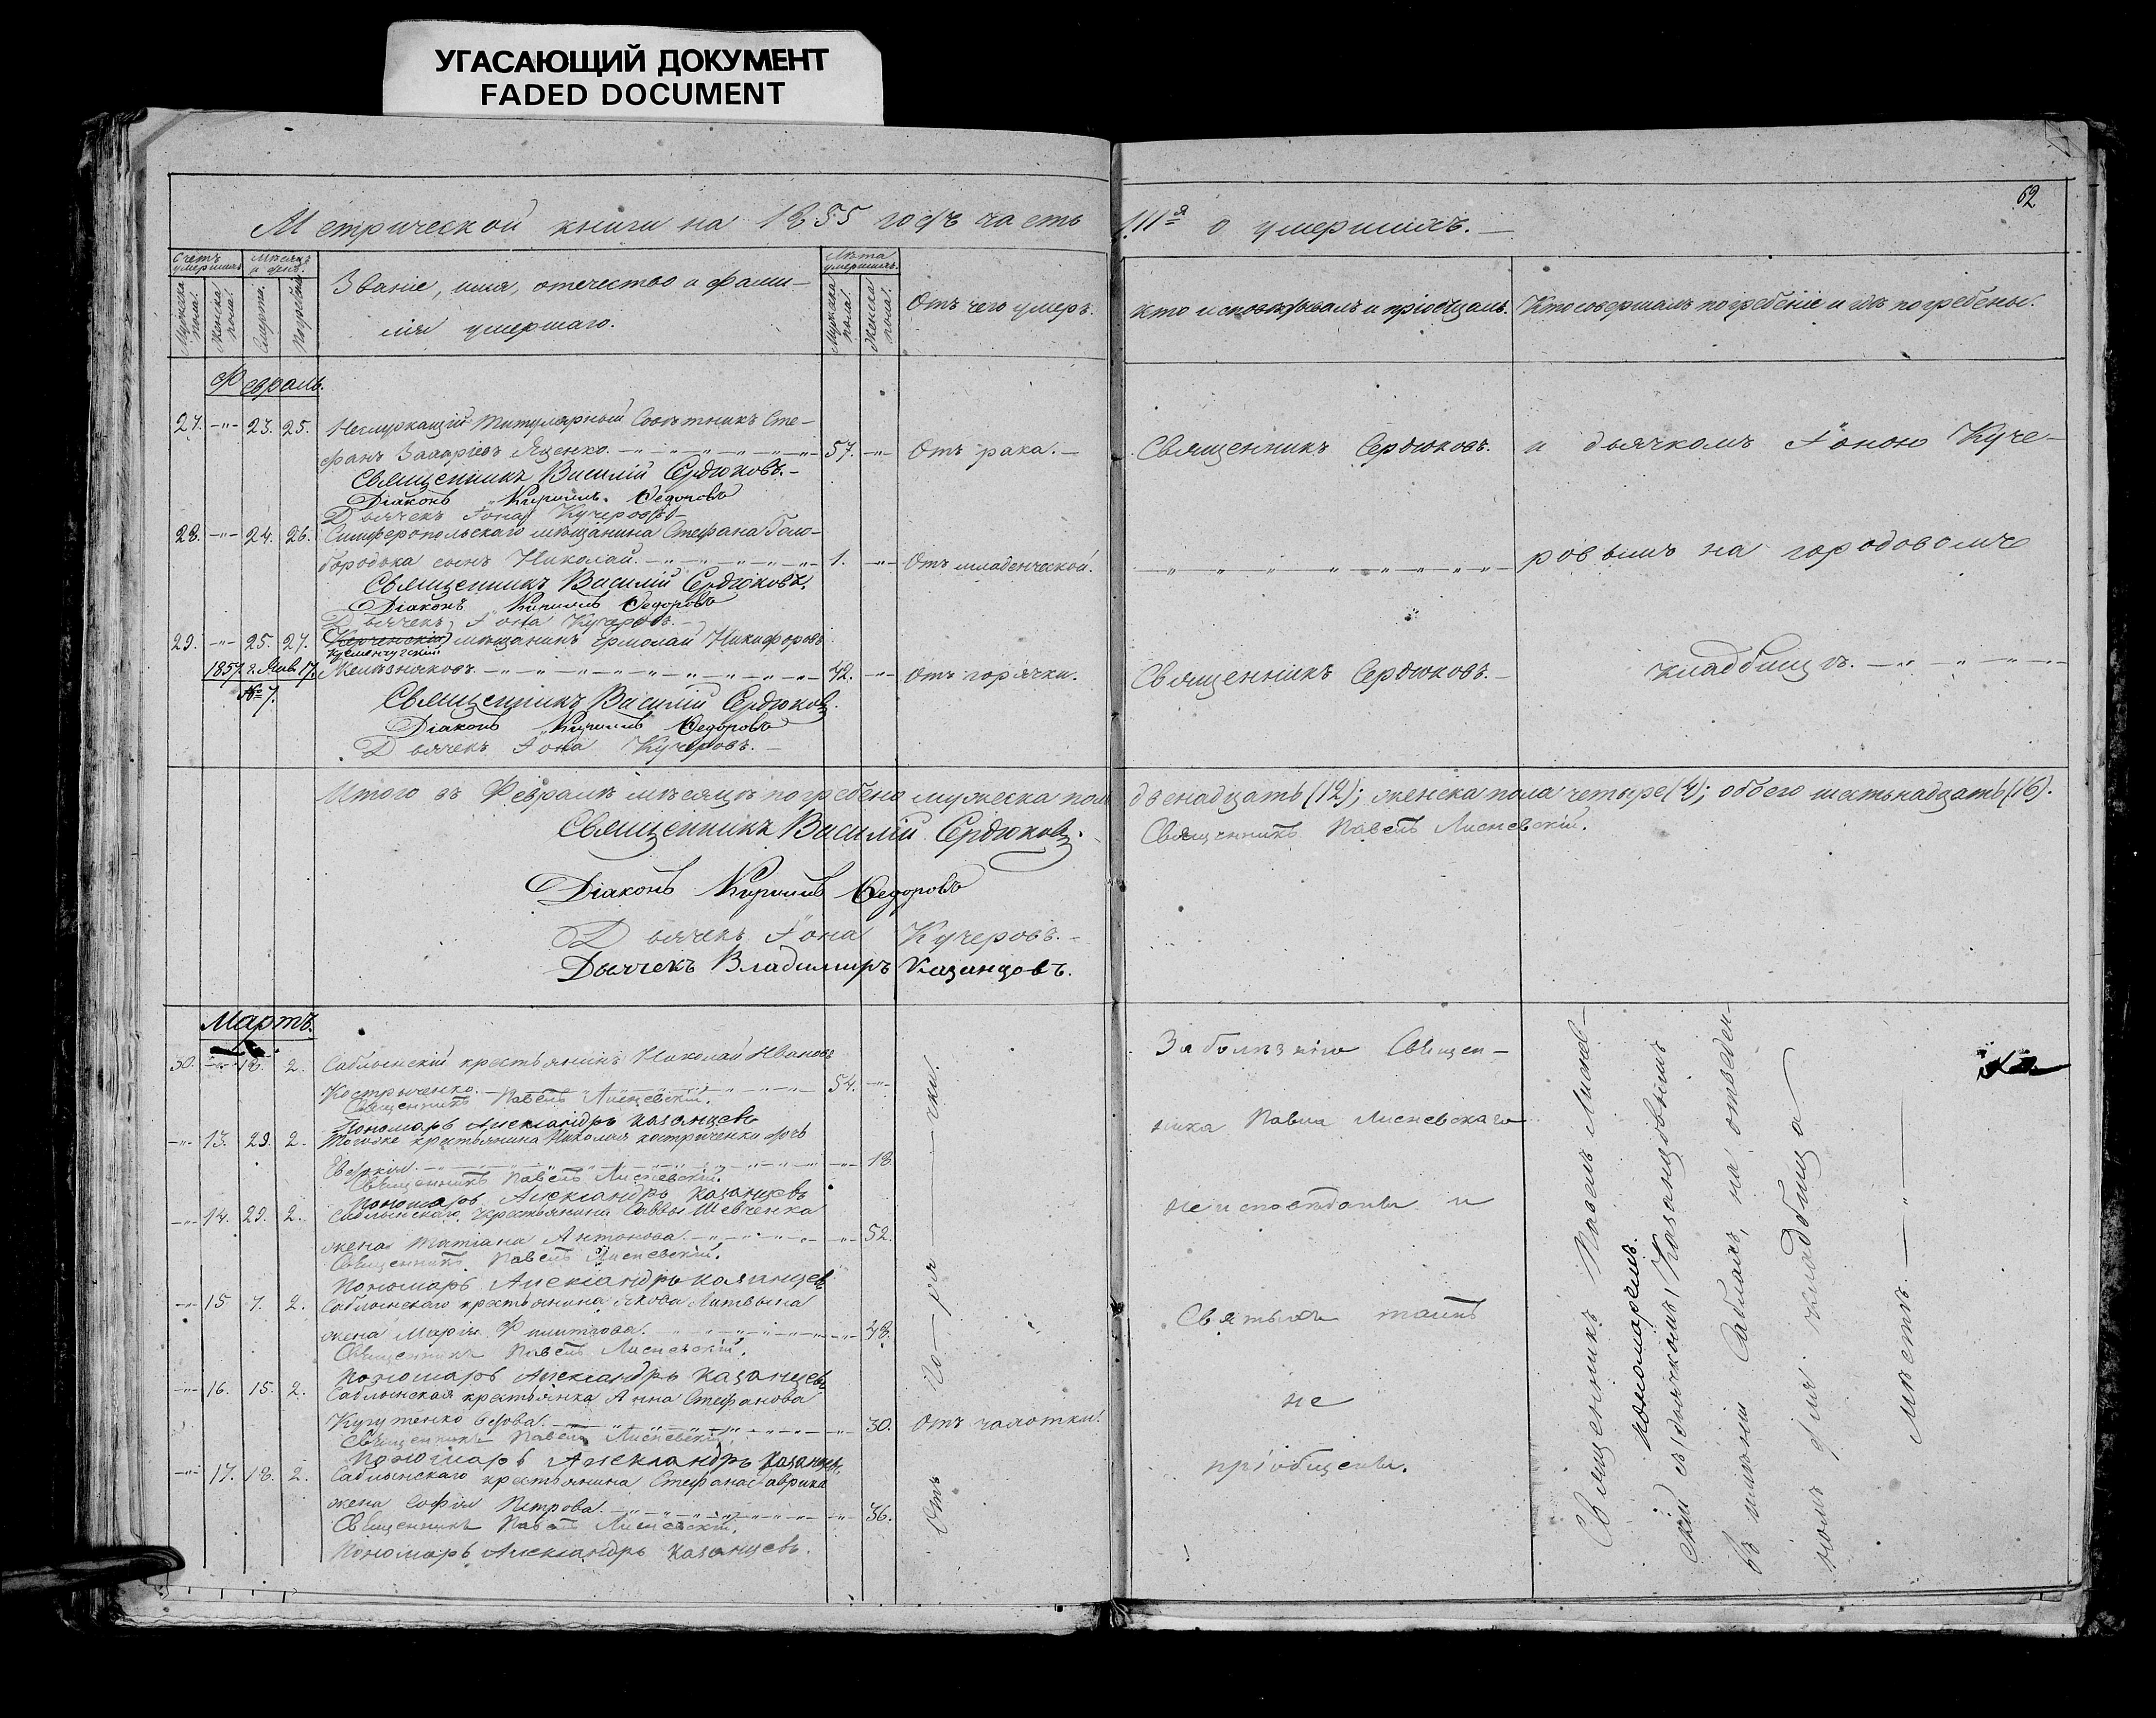 УГАСАЮЩИЙ ДОКУМЕНТ
FADED DOCUMENT
62
Метрической книги на 1855 годъ часть IIIя о умершихъ.
Счетъ умершихъ
Мѣсяцъ и день.
Лѣта умершихъ.
Мужеска пола.
Женска пола.
Смерти.
Погребенія
Званіе, имя, отечество и фами-
лія умершаго.
Мужеска пола.
Женска пола.
Отъ чего умеръ.
Кто исповѣдывалъ и пріобщалъ.
Кто совершалъ погребеніе и гдѣ погребены.
Февраль.
27. -"- 23. 25. Неслужащій Титулярный Совѣтникъ Сте-
фанъ Захаріевъ Яценко. 57. -"- Отъ рака. Священникъ Сердюковъ. и дьячкомъ Іоною Куче-
Священникъ Василій Сердюковъ.
Діаконъ Кириллъ Федоровъ
Дьячекъ Іона Кучеровъ.
28. -"- 24. 26. Симферопольскаго мѣщанина Стефана Бѣло-
бородока сынъ Николай. 1. -"- Отъ младенческой. ровымъ на городовомъ
Священникъ Василій Сердюковъ.
Діаконъ Кириллъ Федоровъ
Дьячекъ Іона Кучеровъ.
29. -"- 25. 27. мѣщанинъ Ермолай Никифоровъ
Кременчугскій
1857 г. Янв. 17. Желѣзняковъ. 42. -"- Отъ горячки. Священникъ Сердюковъ. кладбищѣ.
№ 7.
Священникъ Василій Сердюковъ.
Діаконъ Кириллъ Федоровъ
Дьячекъ Іона Кучеровъ.
Итого въ Февралѣ мѣсяцѣ погребено мужеска пола двенадцать (12); женска пола четыре (4); обоего шестьнадцать (16).
Священникъ Василій Сердюковъ.
Священникъ Павелъ Лисневскій.
Діаконъ Кириллъ Федоровъ
Дьячекъ Іона Кучеровъ.
Дьячекъ Владимиръ Казанцовъ.
Мартъ.
30. -"- 18. 2. Саблынскій крестьянинъ Николай Ивановъ
Кострыченко. 54. -"-
Священникъ Павелъ Лисневскій.
Пономарь Александръ Казанцевъ
-"- 13. 29. 2. Тогоже крестьянина Николая Костриченки дочь
Евдокія. -"- 18.
Священникъ Павелъ Лисневскій.
Пономарь Александръ Казанцевъ
-"- 14. 29. 2. Саблынскаго крестьянина Саввы Шевченка
жена Татіана Антонова. -"- 52.
Священникъ Павелъ Лисневскій.
Пономарь Александръ Казанцевъ
-"- 15. 7. 2. Саблынскаго крестьянина Якова Литвына
жена Марія Филиппова. -"- 48.
Священникъ Павелъ Лисневскій.
Пономарь Александръ Казанцевъ
-"- 16. 15. 2. Саблынская крестьянка Анна Стефанова
вдова. -"- 30. Отъ чахотки.
Священникъ Павелъ Лисневскій.
Пономарь Александръ Казанцевъ
-"- 17. 18. 2. Саблынскаго крестьянина Стефана Гаврика
жена Софія Петрова. -"- 36.
Священникъ Павелъ Лисневскій.
Пономарь Александръ Казанцевъ.
Отъ го-ря-чки.
За болѣзнію Священ-
ника Павла Лисневскаго
не исповѣданы и
Святыхъ таинъ
не
пріобщены.
Священникъ Павелъ Лиснев-
пономаремъ.
скій съ дьячкомъ Казанцовымъ
въ имѣніи Саблахъ, на отведен-
номъ для кладбища
мѣстѣ.